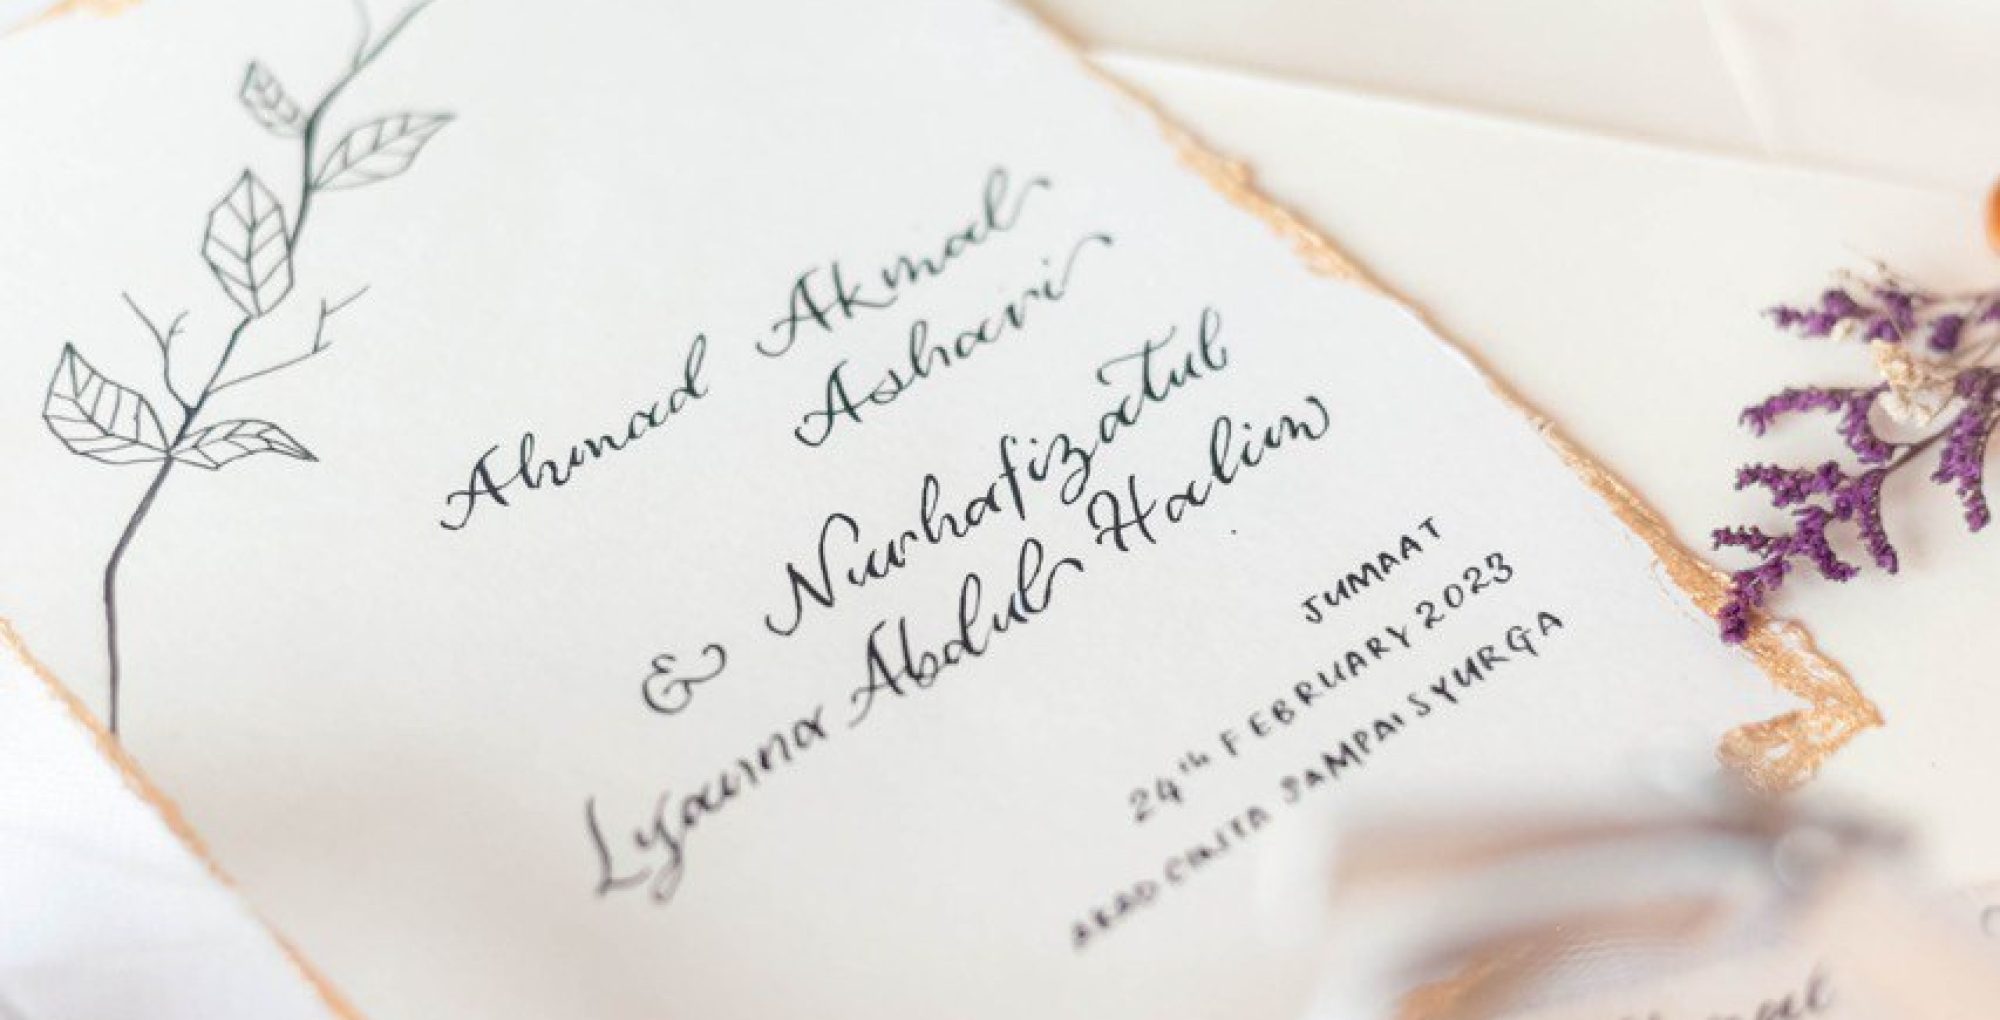 Ahmad Akmal
Ashari
& Nurhafizatul
Lyawna Abdul Halim
JUMAAT
24th FEBRUARY 2023
AKAD CINTA SAMPAI SYURGA